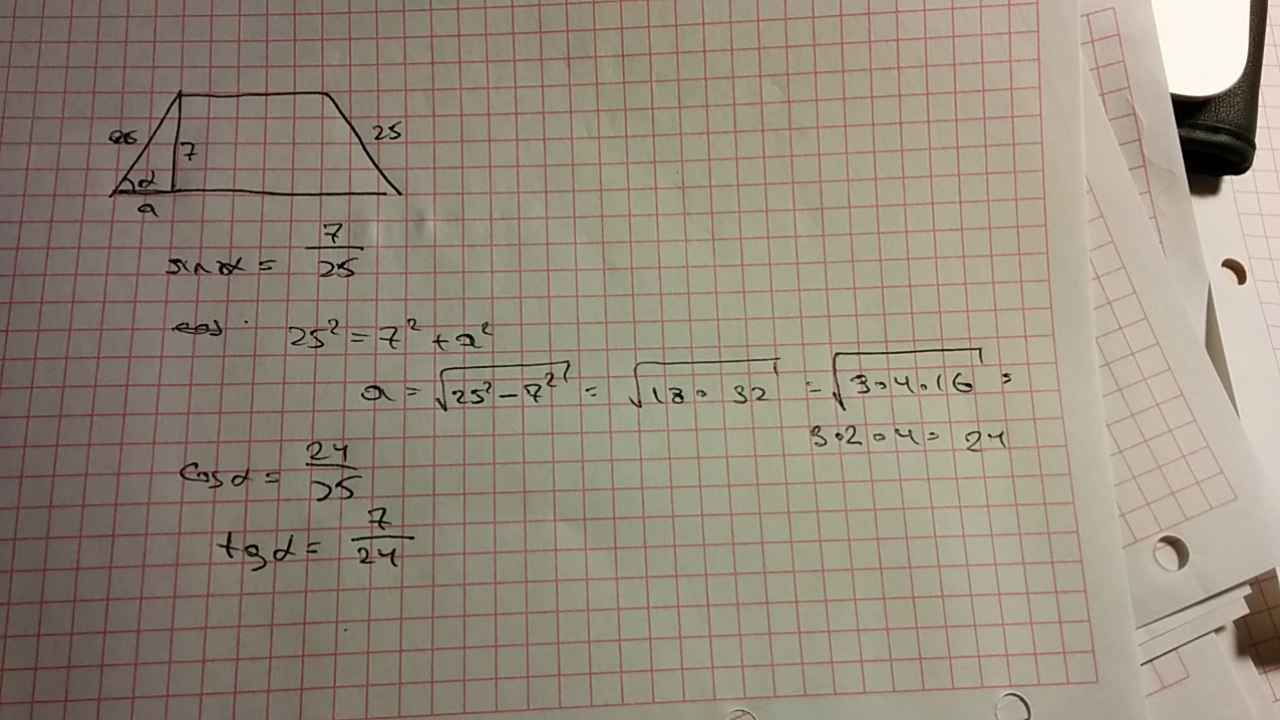 25
25
7
α
a
sin α = 7/25
25² = 7² + a²
a = √(25² - 7²) = √(18 · 32) = √(9 · 4 · 16) =
3 · 2 · 4 = 24
cos α = 24/25
tg α = 7/24